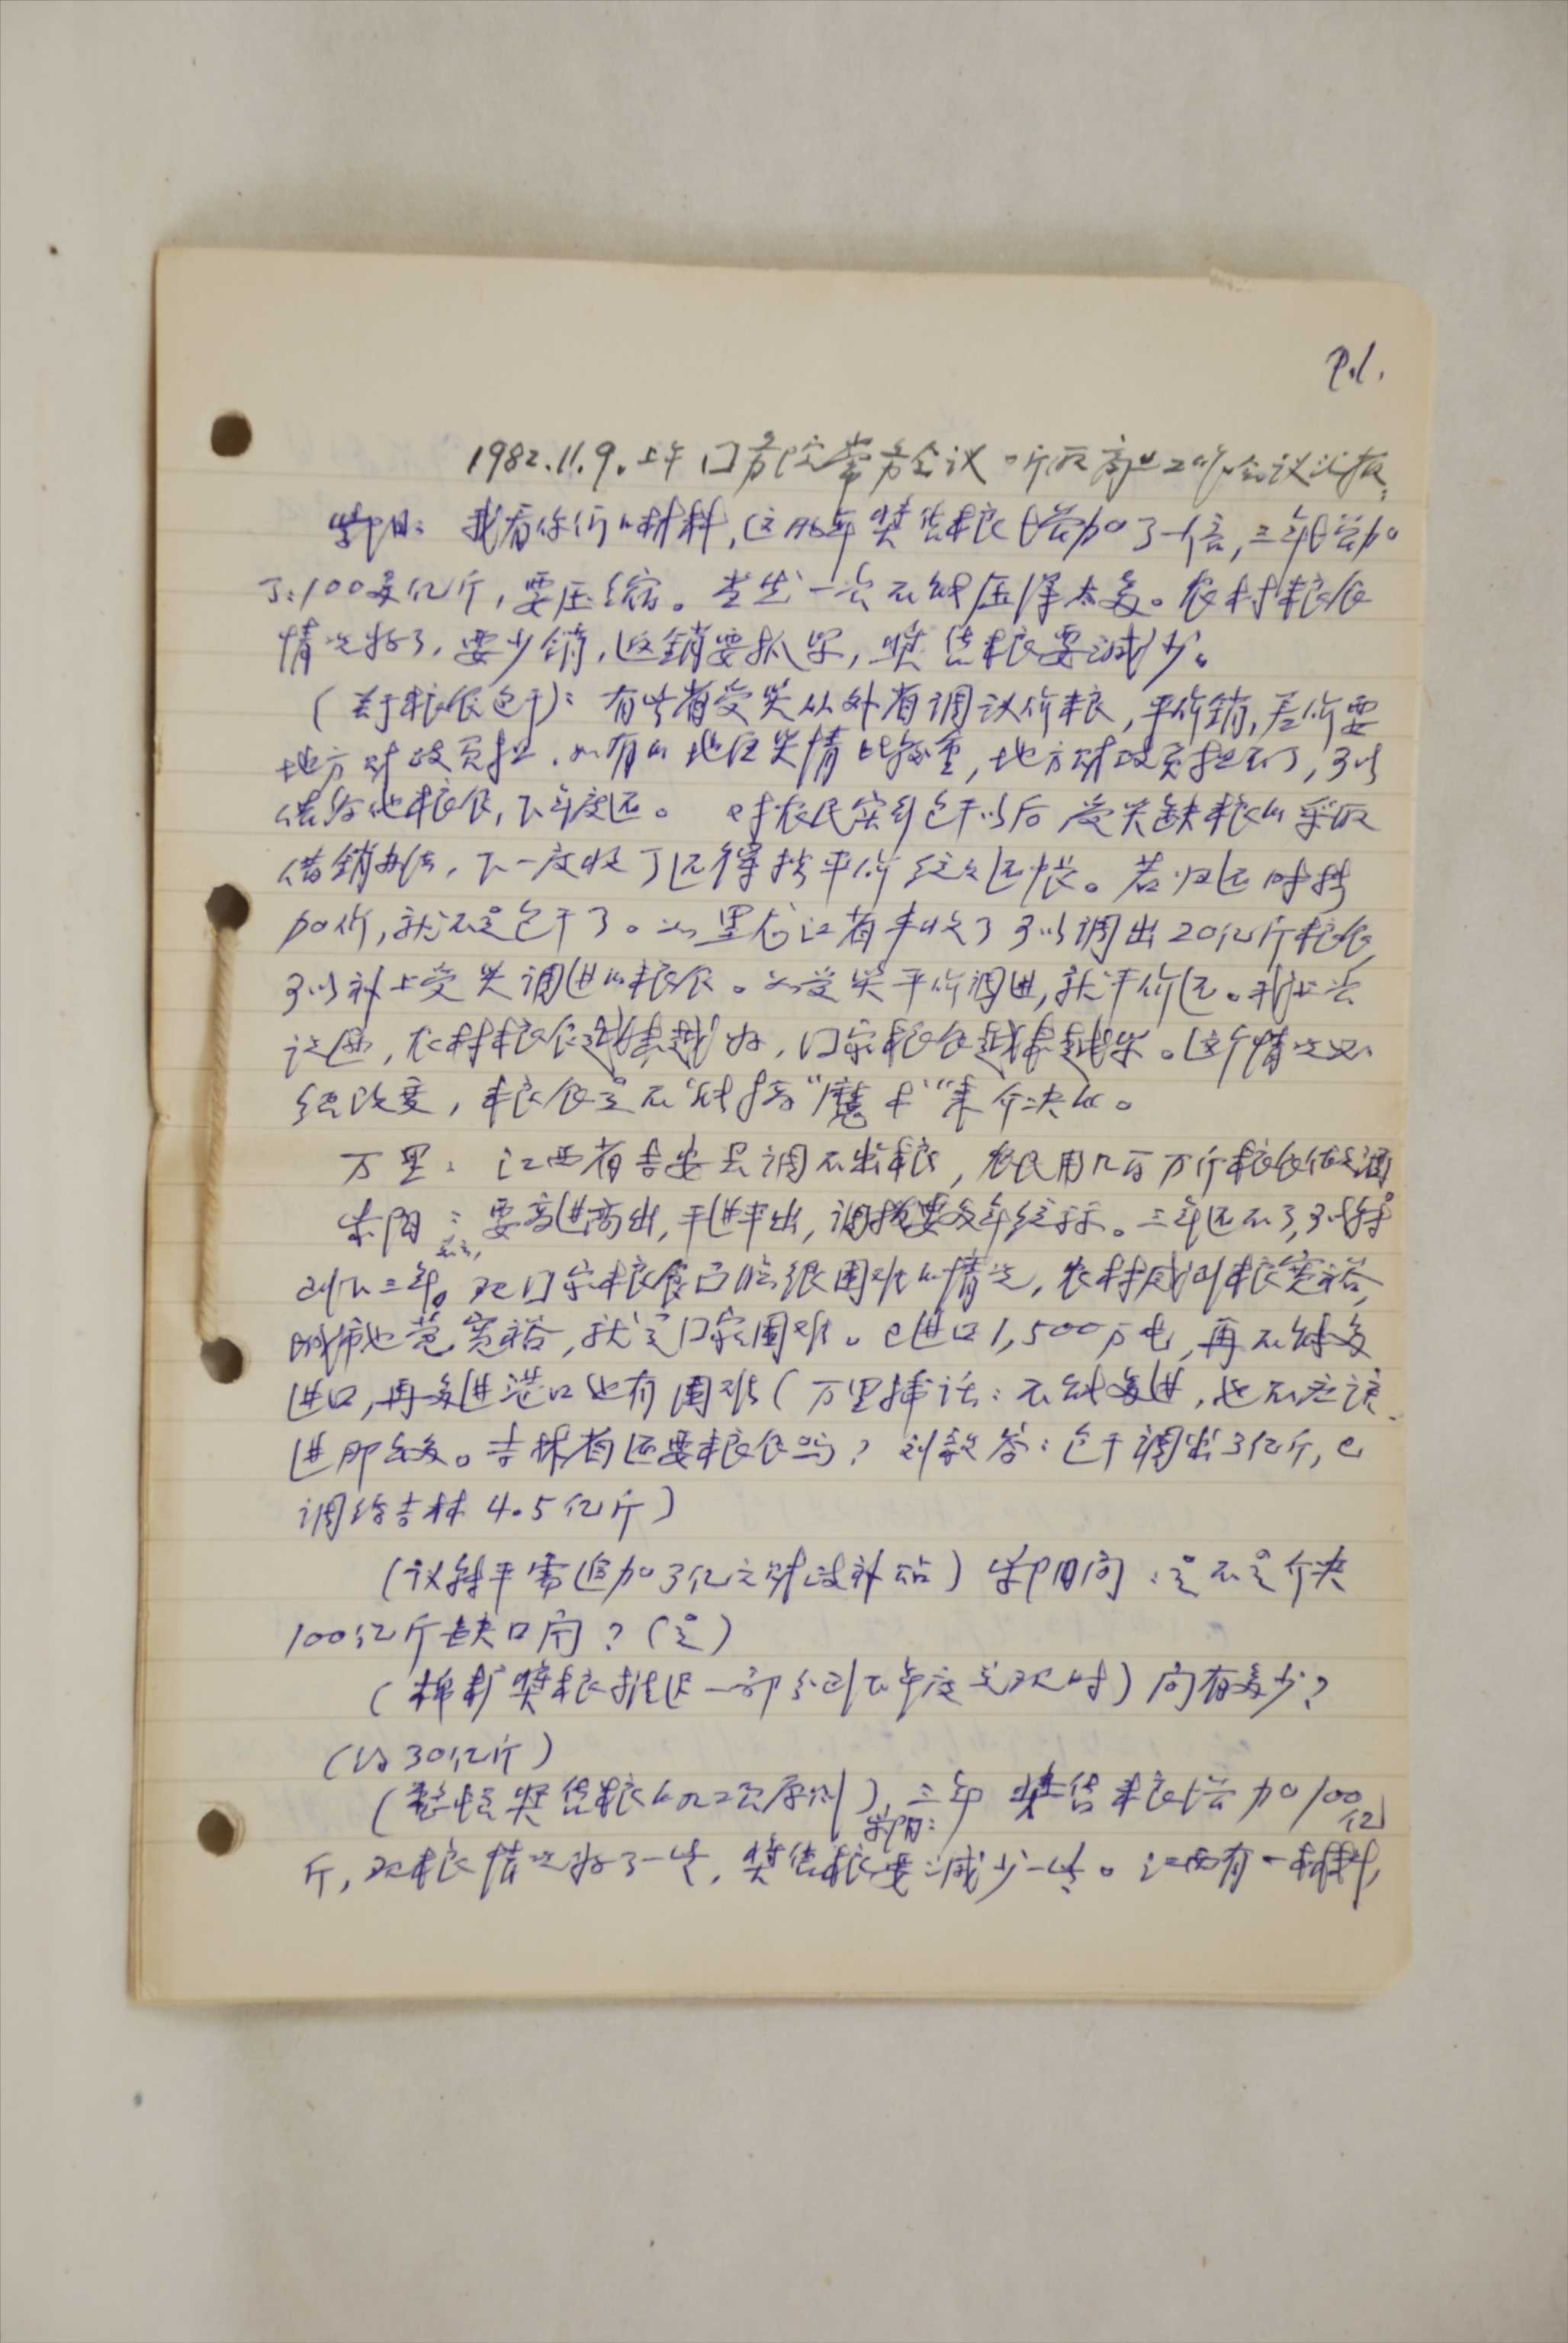 P.1.
1982.11.9.上午 囗务院常务会议 听取商业工作会议汇报
紫阳：我看你们的材料，这几年奖售粮增加了一倍，三年增加
了100多亿斤，要压缩。当然一次不能压得太多。农村粮食
情况好了，要少销，返销要抓紧，奖售粮要减少。
（关于粮食包干）：有些省受灾从外省调议价粮，平价销，差价要
地方财政负担，如有的地区灾情比较重，地方财政负担不了，可以
借给他粮食，下年度还。 对农民实行包干以后受灾缺粮的采取
借销办法，下一度收了还得按平价给还帐。若归还时按
加价，就不是包干了。如黑龙江省丰收了可以调出20亿斤粮食，
可以补上受灾调进的粮食。如受灾平价调进，就平价还。我上次
说过，农村粮食越来越好，囗家粮食越来越紧。这个情况必
须改变，粮食是不能搞“魔术”来介决的。
万里：江西省吉安县调不出粮，农民用几百万斤粮食
紫阳：要高进高出，平进平出，调拨要多年结算。三年还不了，可以转
到下三年。现囗家粮食面临很困难的情况，农村感到粮宽裕，
城市也宽裕，就是囗家困难。已进口1,500万吨，再不能多
进口，再多进港口也有困难（万里插话：不能多进，也不应该
进那么多。吉林省还要粮食吗？刘毅答：包干调出3亿斤，已
调给吉林4.5亿斤）
（议转平需追加3亿元财政补贴）紫阳问：是不是介决
100亿斤缺口用？（是）
（棉花奖粮推迟一部分到下年度兑现时）问有多少？
（约30亿斤）
（整顿奖售粮的几项原则），紫阳：三年奖售粮增加100亿
斤，现粮情况好了一些，奖售粮要减少一些。江西有一材料，